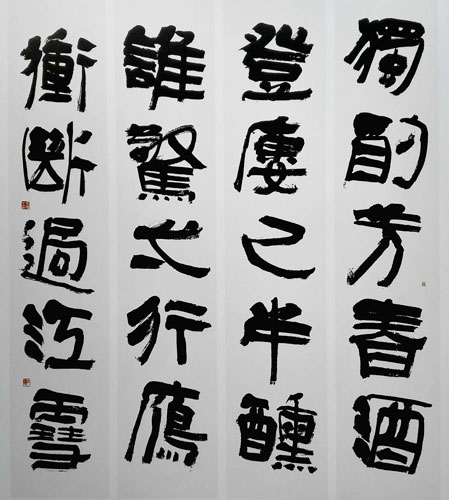 獨酌芳春酒
登廔已半醺
誰驚之行鴈
衝斷過江雪